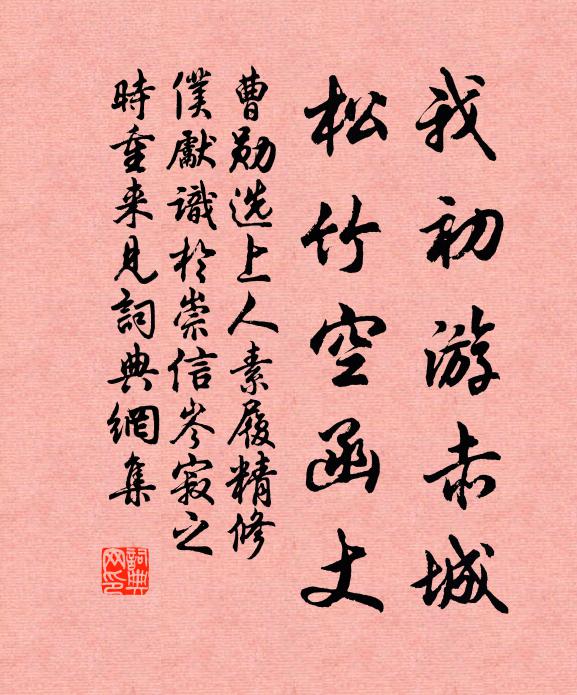 我初游赤城
松竹空函丈
曹勋选上人素履精修
僕獻識於崇信岑寂之
時重来見詞典網集
詞典网印